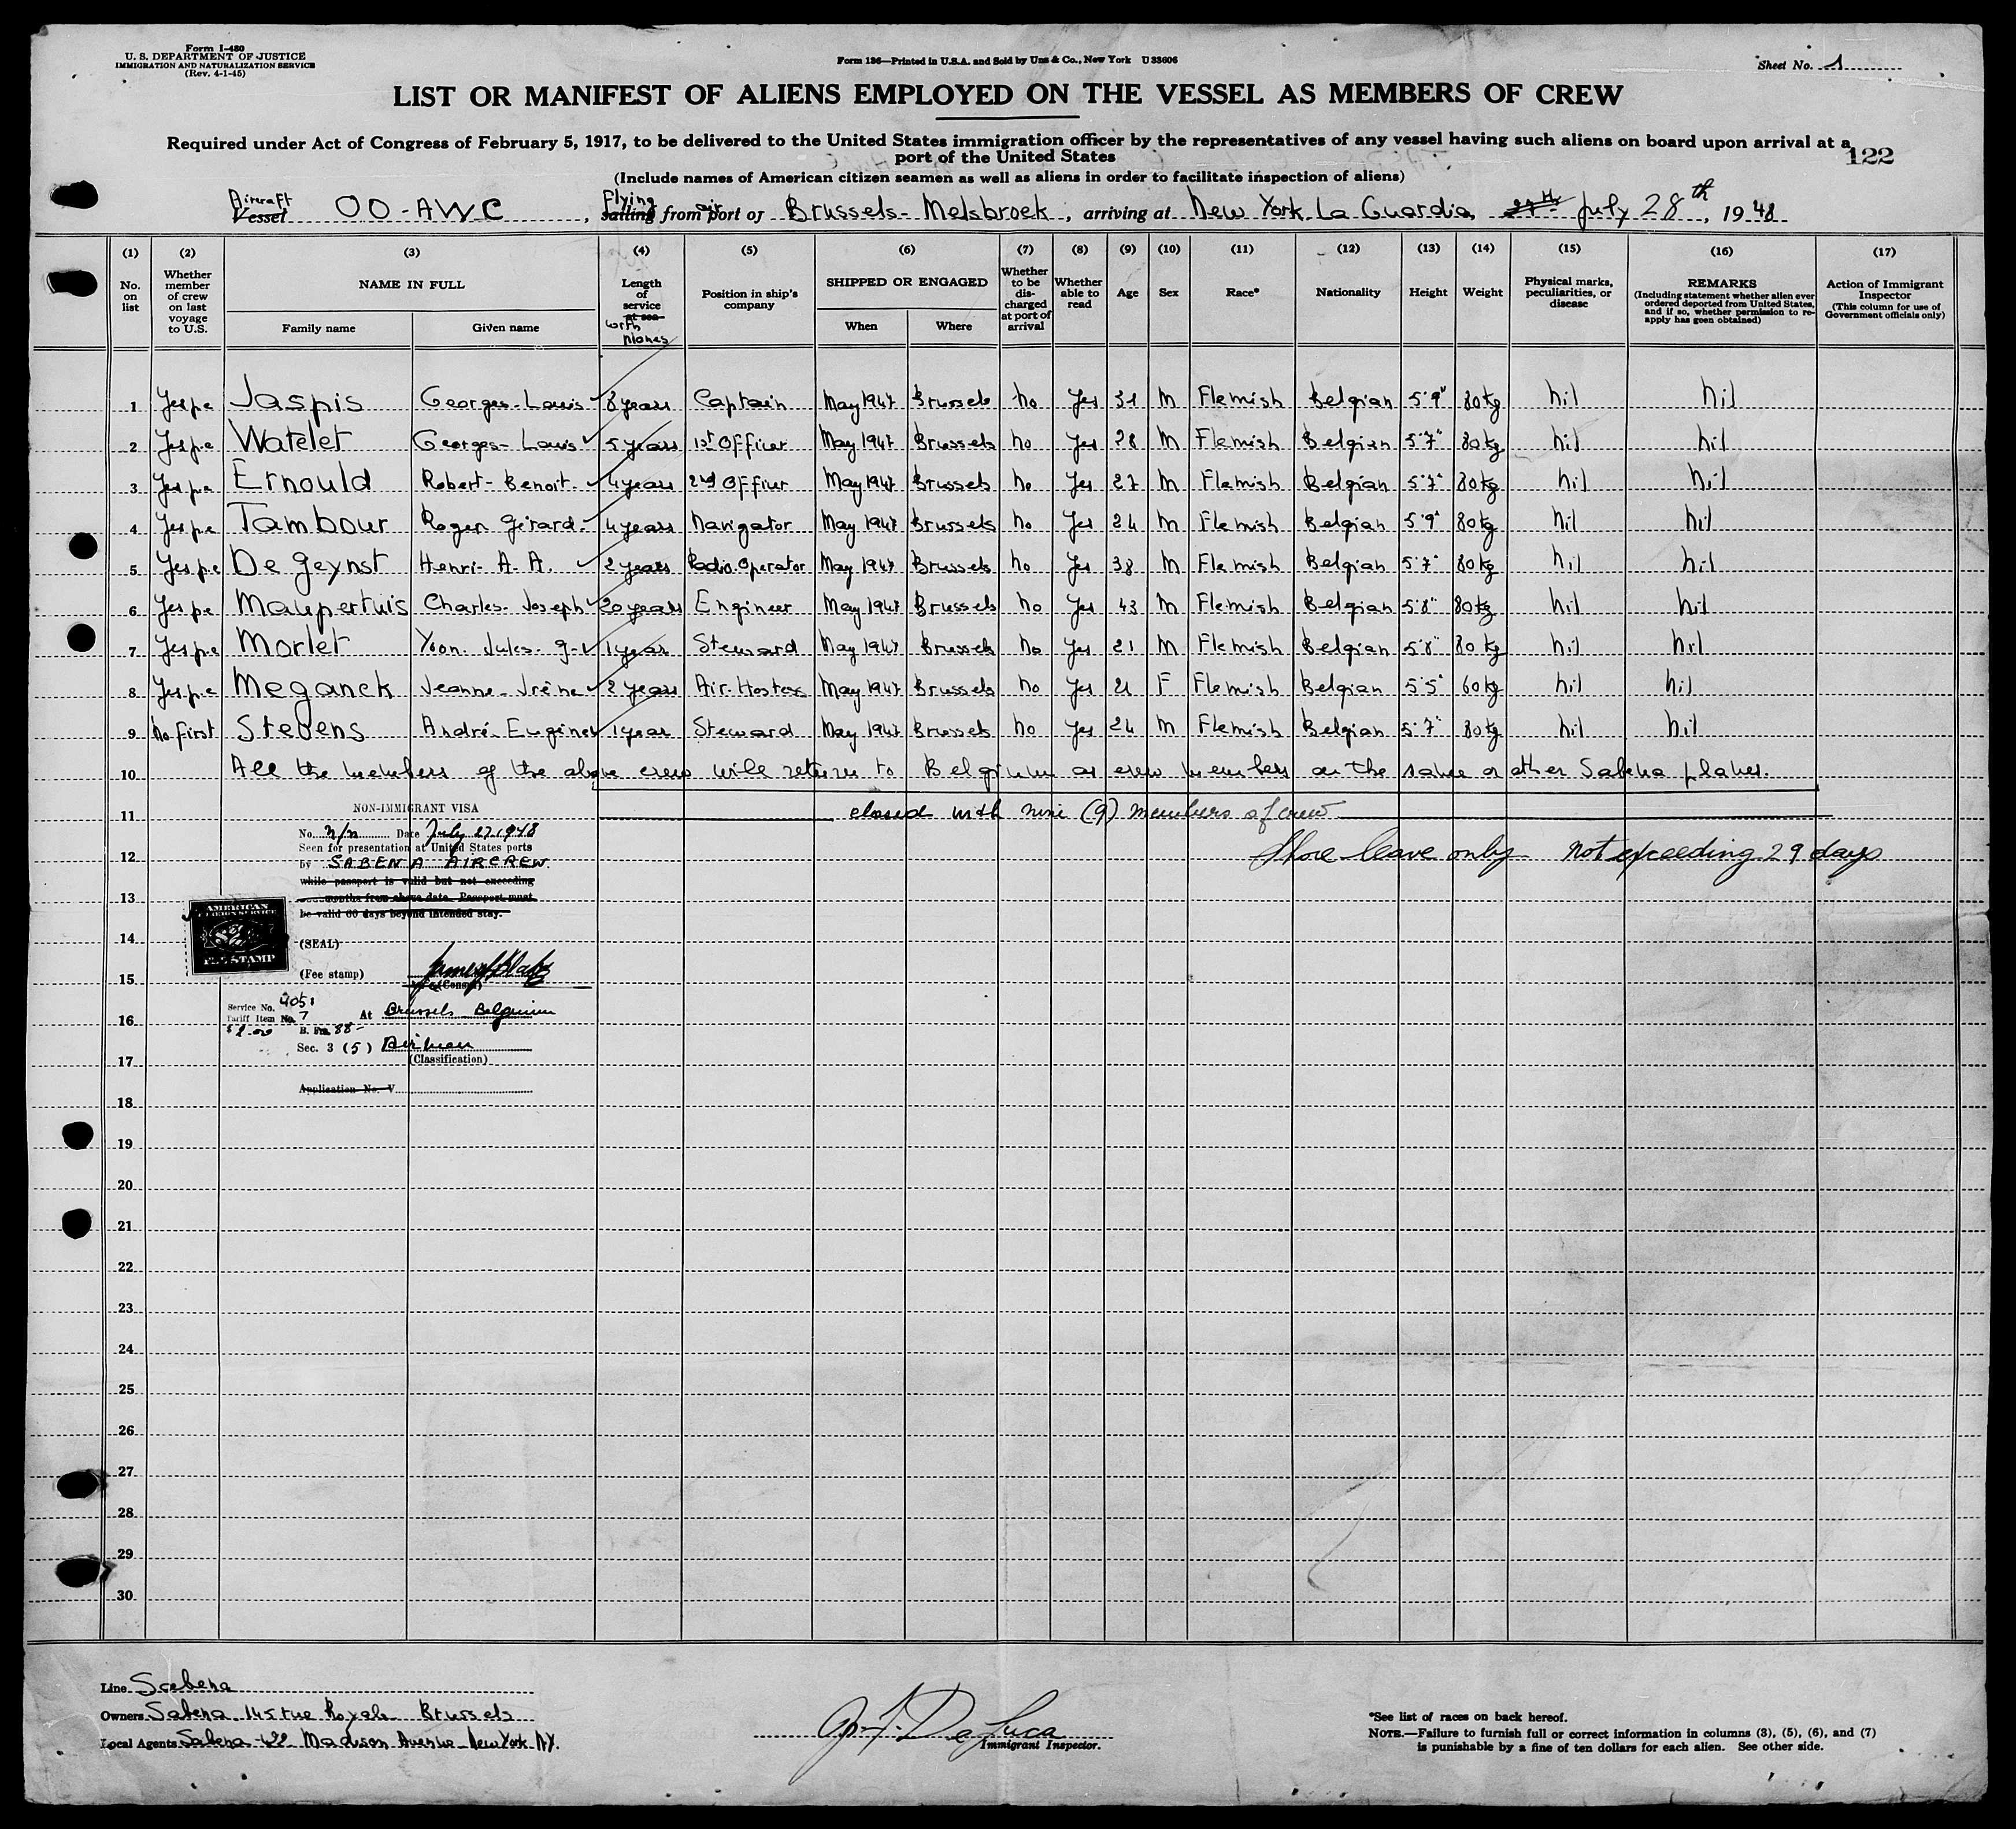 Form I-480
U. S. DEPARTMENT OF JUSTICE
IMMIGRATION AND NATURALIZATION SERVICE
(Rev. 4-1-45)
Form 136—Printed in U.S.A. and Sold by Unz & Co., New York U 33606
Sheet No. 1
LIST OR MANIFEST OF ALIENS EMPLOYED ON THE VESSEL AS MEMBERS OF CREW
Required under Act of Congress of February 5, 1917, to be delivered to the United States immigration officer by the representatives of any vessel having such aliens on board upon arrival at a
port of the United States
122
(Include names of American citizen seamen as well as aliens in order to facilitate inspection of aliens)
Aircraft Flying air
Vessel OO-AWC, sailing from port of Brussels-Melsbroek, arriving at New York La Guardia, 27th July 28th, 1948
(1) (2) (3) (4) (5) (6) (7) (8) (9) (10) (11) (12) (13) (14) (15) (16) (17)
No. on list
Whether member of crew on last voyage to U.S.
NAME IN FULL
Family name Given name
Length of service at sea with planes
Position in ship's company
SHIPPED OR ENGAGED
When Where
Whether to be discharged at port of arrival
Whether able to read
Age
Sex
Race*
Nationality
Height
Weight
Physical marks, peculiarities, or disease
REMARKS
(Including statement whether alien ever ordered deported from United States, and if so, whether permission to re-apply has geen obtained)
Action of Immigrant Inspector
(This column for use of Government officials only)
1 Yes p.e Jaspis Georges-Louis 8 years Captain May 1947 Brussels No Yes 31 M Flemish Belgian 5'9" 80kg nil nil
2 Yes p.e Watelet Georges-Louis 5 years 1st Officer May 1947 Brussels No Yes 28 M Flemish Belgian 5'7" 80kg nil nil
3 Yes p.e Ernould Robert-Benoit 4 years 2nd Officer May 1947 Brussels No Yes 27 M Flemish Belgian 5'7" 80kg nil nil
4 Yes p.e Tambour Roger Gérard 4 years Navigator May 1947 Brussels No Yes 24 M Flemish Belgian 5'9" 80kg nil nil
5 Yes p.e De geynst Henri-A.A. 2 years Radio Operator May 1947 Brussels No Yes 38 M Flemish Belgian 5'7" 80kg nil nil
6 Yes p.e Maupertuis Charles-Joseph 20 years Engineer May 1947 Brussels No Yes 43 M Flemish Belgian 5'8" 80kg nil nil
7 Yes p.e Morlet Yvon-Jules-G- 1 year Steward May 1947 Brussels No Yes 21 M Flemish Belgian 5'8" 80 kg nil nil
8 Yes p.e Meganck Jeanne-Irène 2 years Air-Hostess May 1947 Brussels No Yes 21 F Flemish Belgian 5'5" 60kg nil nil
9 No first Stevens André-Eugène 1 year Steward May 1947 Brussels No Yes 24 M Flemish Belgian 5'7" 80kg nil nil
10 All the members of the above crew will return to Belgium as crew members on the same or other Sabena planes.
11 closed with nine (9) members of crew
12 Shore leave only not exceeding 29 days
NON-IMMIGRANT VISA
No. n/n Date July 27, 1948
Seen for presentation at United States ports
by SABENA AIRCREW
while passport is valid but not exceeding
months from above date. Passport must
be valid 60 days beyond intended stay.
AMERICAN
FOREIGN SERVICE
$2
FEE STAMP
(SEAL)
(Fee stamp)
(Consul)
Service No. 4051
Tariff Item No. 7 At Brussels Belgium
$2.00 B. Frs 88-
Sec. 3 (5) Airmen
(Classification)
Application No. V
13
14
15
16
17
18
19
20
21
22
23
24
25
26
27
28
29
30
Line Sabena
Owners Sabena 145 rue Royale Brussels
Local Agents Sabena 422 Madison Avenue New York N.Y.
De Luca
Immigrant Inspector.
*See list of races on back hereof.
NOTE.—Failure to furnish full or correct information in columns (3), (5), (6), and (7)
is punishable by a fine of ten dollars for each alien. See other side.